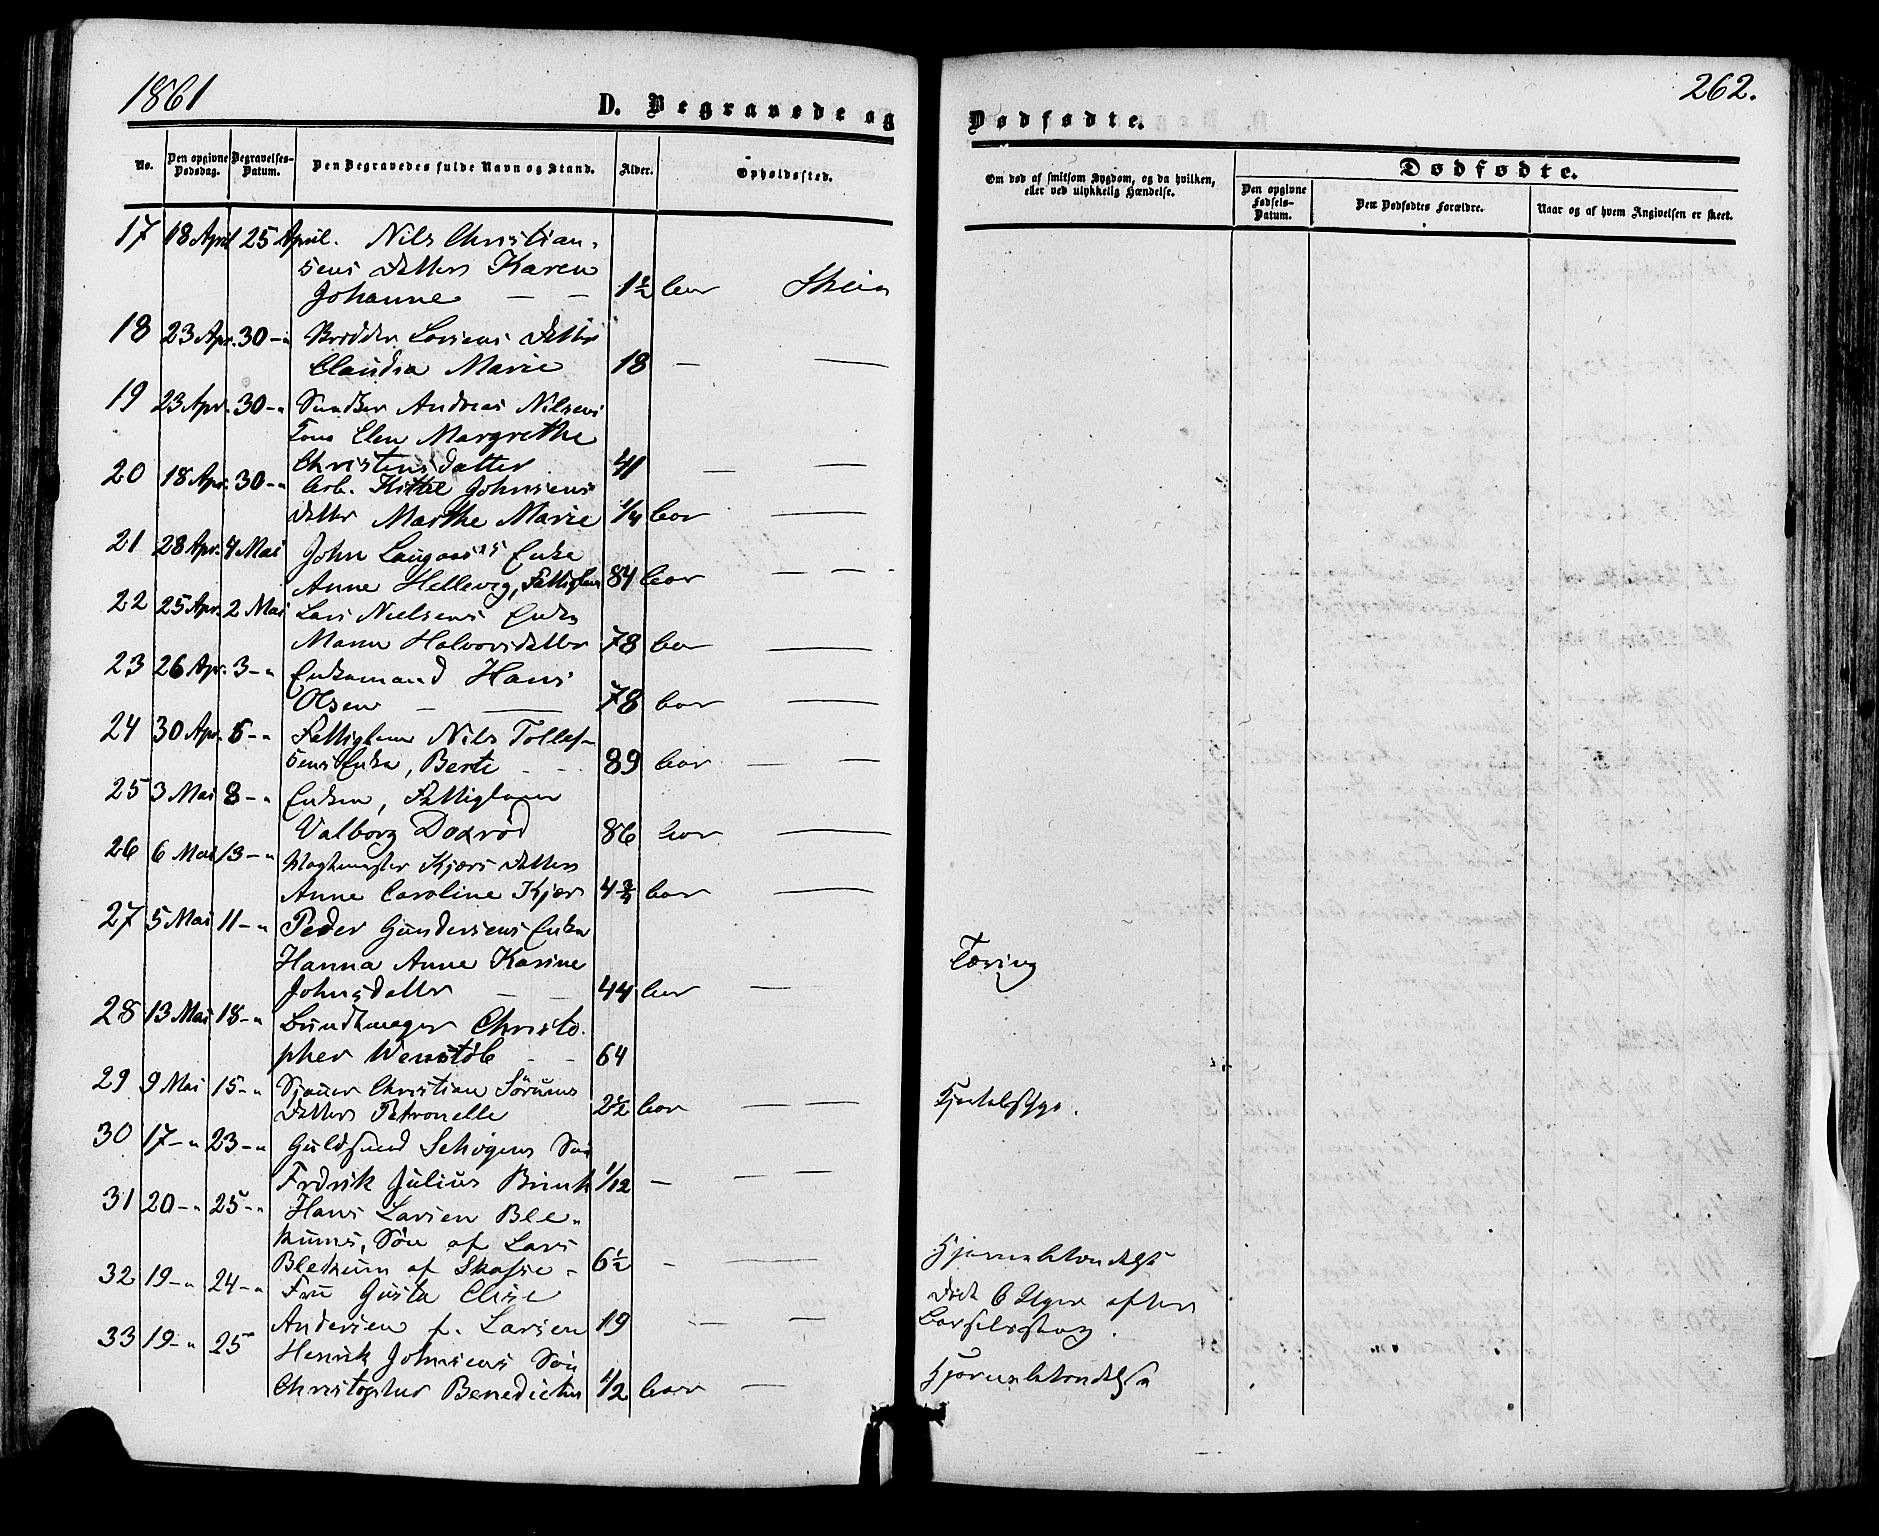 1861
262.
D. Begravede og Dødfødte.
No. Den opgivne Dødsdag. Begravelses-Datum. Den Begravedes fulde Navn og Stand. Alder. Opholdssted.
Om død af smitsom Sygdom, og da hvilken, eller ved ulykkelig Hændelse.
Dødfødte.
Den opgivne Fødsels-Datum. Den Dødfødtes Forældre. Naar og af hvem Angivelsen er skeet.
17 18 April 25 April. Nils Christian-
sens Datter Karen
Johanne — — 1½ Skien
18 23 Apr. 30 -"- Lassens Datter
Claudia Marie 18 — —
19 23 Apr. 30 -"- Andreas Nilsens
Kone Elen Margrethe
Christensdatter 41 — —
20 18 Apr. 30 -"- Arb. Kittel Johnsens
Datter Marthe Marie 1/4 —
21 28 Apr. 4 Mai John Enke
Anne Hellevig, Fattiglem 84 — —
22 25 Apr. 2 Mai Lars Nielsens Enke
Maren Halvorsdatter 78 —
23 26 Apr. 3 -"- Enkemand Hans
Olsen — — 78 —
24 30 Apr. 6 -"- Fattiglem Nils Tollef-
sens Enke, Berte - - 89 — —
25 3 Mai 8 -"- Enken, Fattiglem
Valborg Doxrød 86 —
26 6 Mai 13 -"- Vagtmester Kjærs Datter
Anne Caroline Kjær 4 3/4 —
27 5 Mai 11 -"- Peder Gundersens Enke
Hanna Anne Karine
Johnsdatter — — 44 — Tæring
28 13 Mai 18 -"- Bundtmager Christo-
pher Wenstøb - - 64
29 9 Mai 15 -"- Sjouer Christian Sørums
Datter Petronelle 2½ — — Kjertelsyge.
30 17 -"- 23 -"- Guldsmed Søn
Fredrik Julius 1/12 — — —
31 20 -"- 25 -"- Hans Larsen Ble-
kums, Søn af Lars
Blekum af - 6½ - — Hjernebetændelse
32 19 -"- 24 -"- Fru Gusta Elise
Andersen f. Larsen 19 — — Død 6 Uger efter
Barselseng.
33 19 -"- 25 Henrik Johnsens Søn
Christopher Benedictus 1/2 — Hjernebetændelse